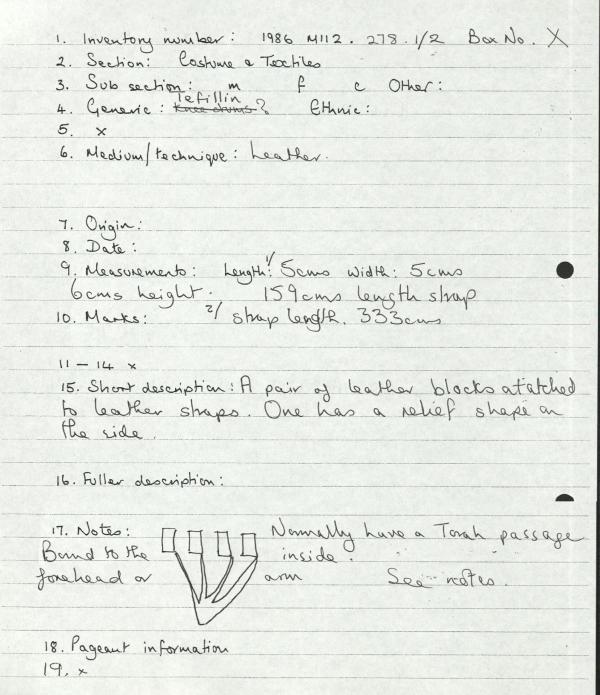 1. Inventory number: 1986 M112. 278. 1/2 Box No. X
2. Section: Costume & Textiles
3. Sub section: m f c Other:
Tefillin
4. Generic: Knee drums? Ethnic:
5. x
6. Medium/technique: Leather.
7. Origin:
8. Date:
9. Measurements: Length: 1/ 5cms width: 5cms
6cms height. 159cms length strap
10. Marks: 2/ strap length. 333cms
11 - 14 x
15. Short description: A pair of leather blocks atatched
to leather straps. One has a relief shape on
the side.
16. Fuller description:
17. Notes: Normally have a Torah passage
Bound to the inside.
forehead or arm See notes.
18. Pageant information
19. x